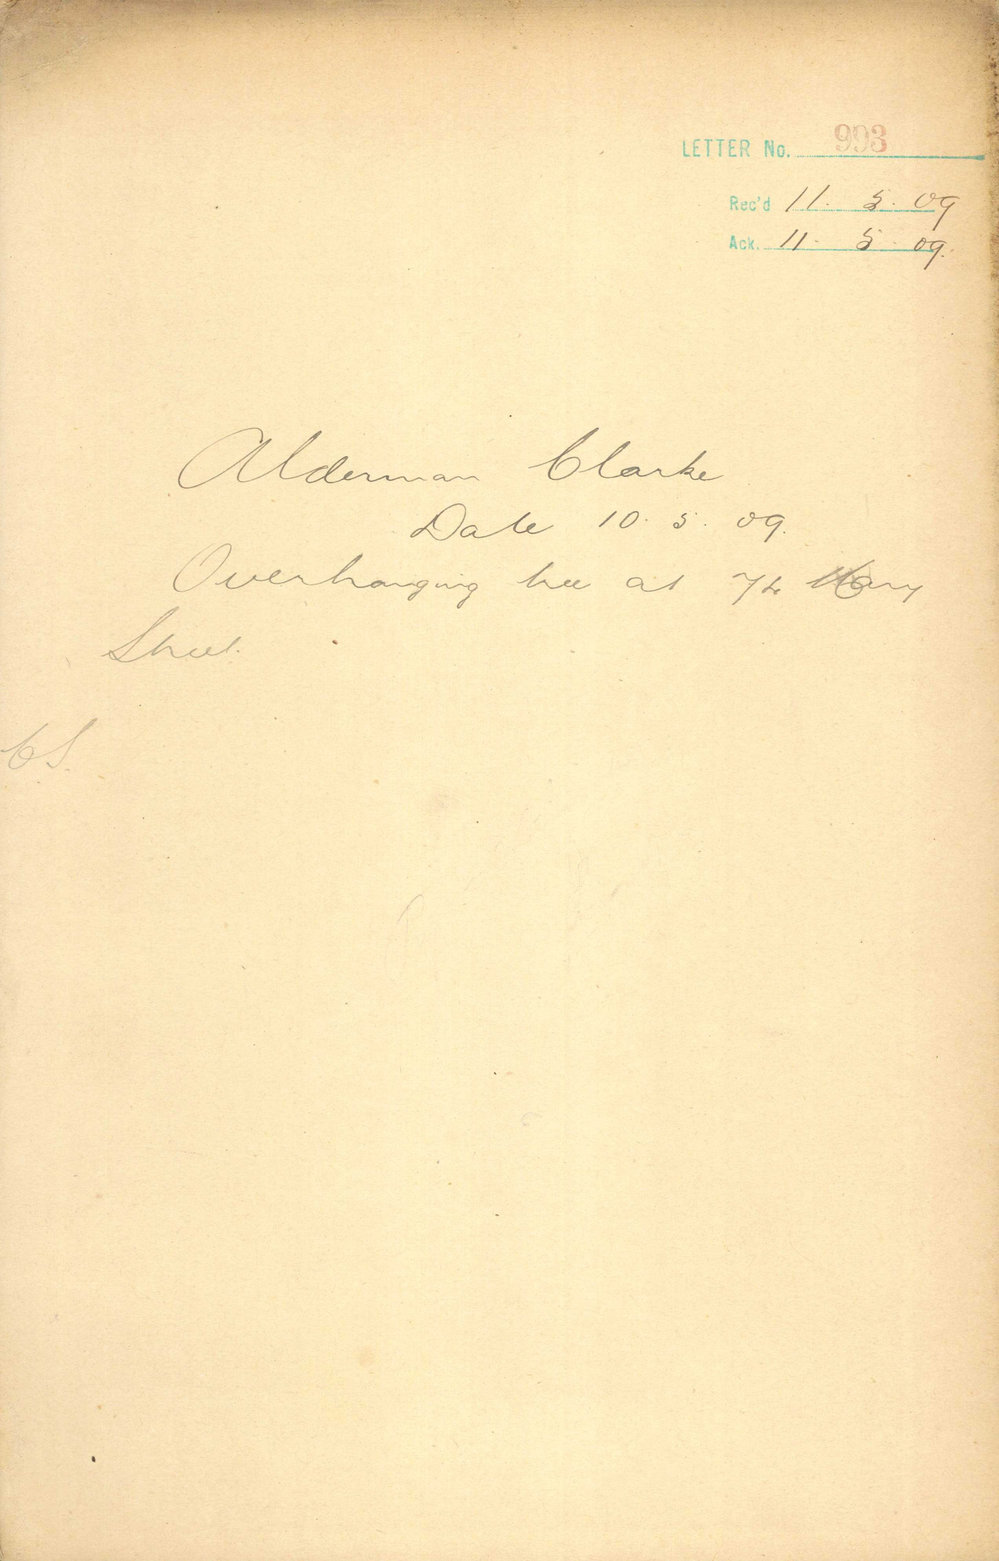 LETTER No. 993
Rec'd 11. 5. 09
Ack. 11. 5. 09.
Alderman Clarke
Date 10. 5. 09.
Overhanging tree at Mary
Street.
CS.